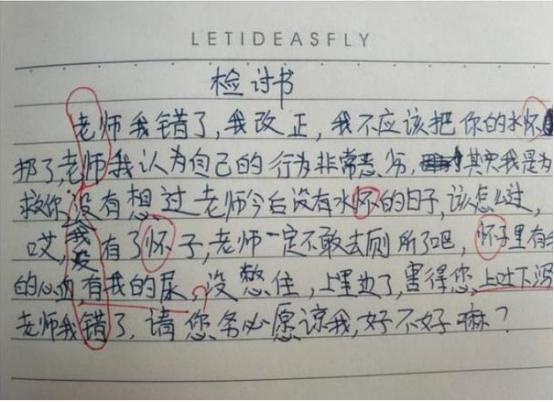 LETIDEASFLY
检讨书
老师我错了,我改正,我不应该把你的水怀
扔了老师我认为自己的行为非常恶劣,其实我是为
救你,没有想过老师今后没有水怀的日子,该怎么过,
哎,我没有了怀子,老师一定不敢去厕所了吧,怀子里有
的心血,有我的尿,没憋住,上里边了,害得您上吐下泻
老师我错了,请您务必愿谅我,好不好嘛?